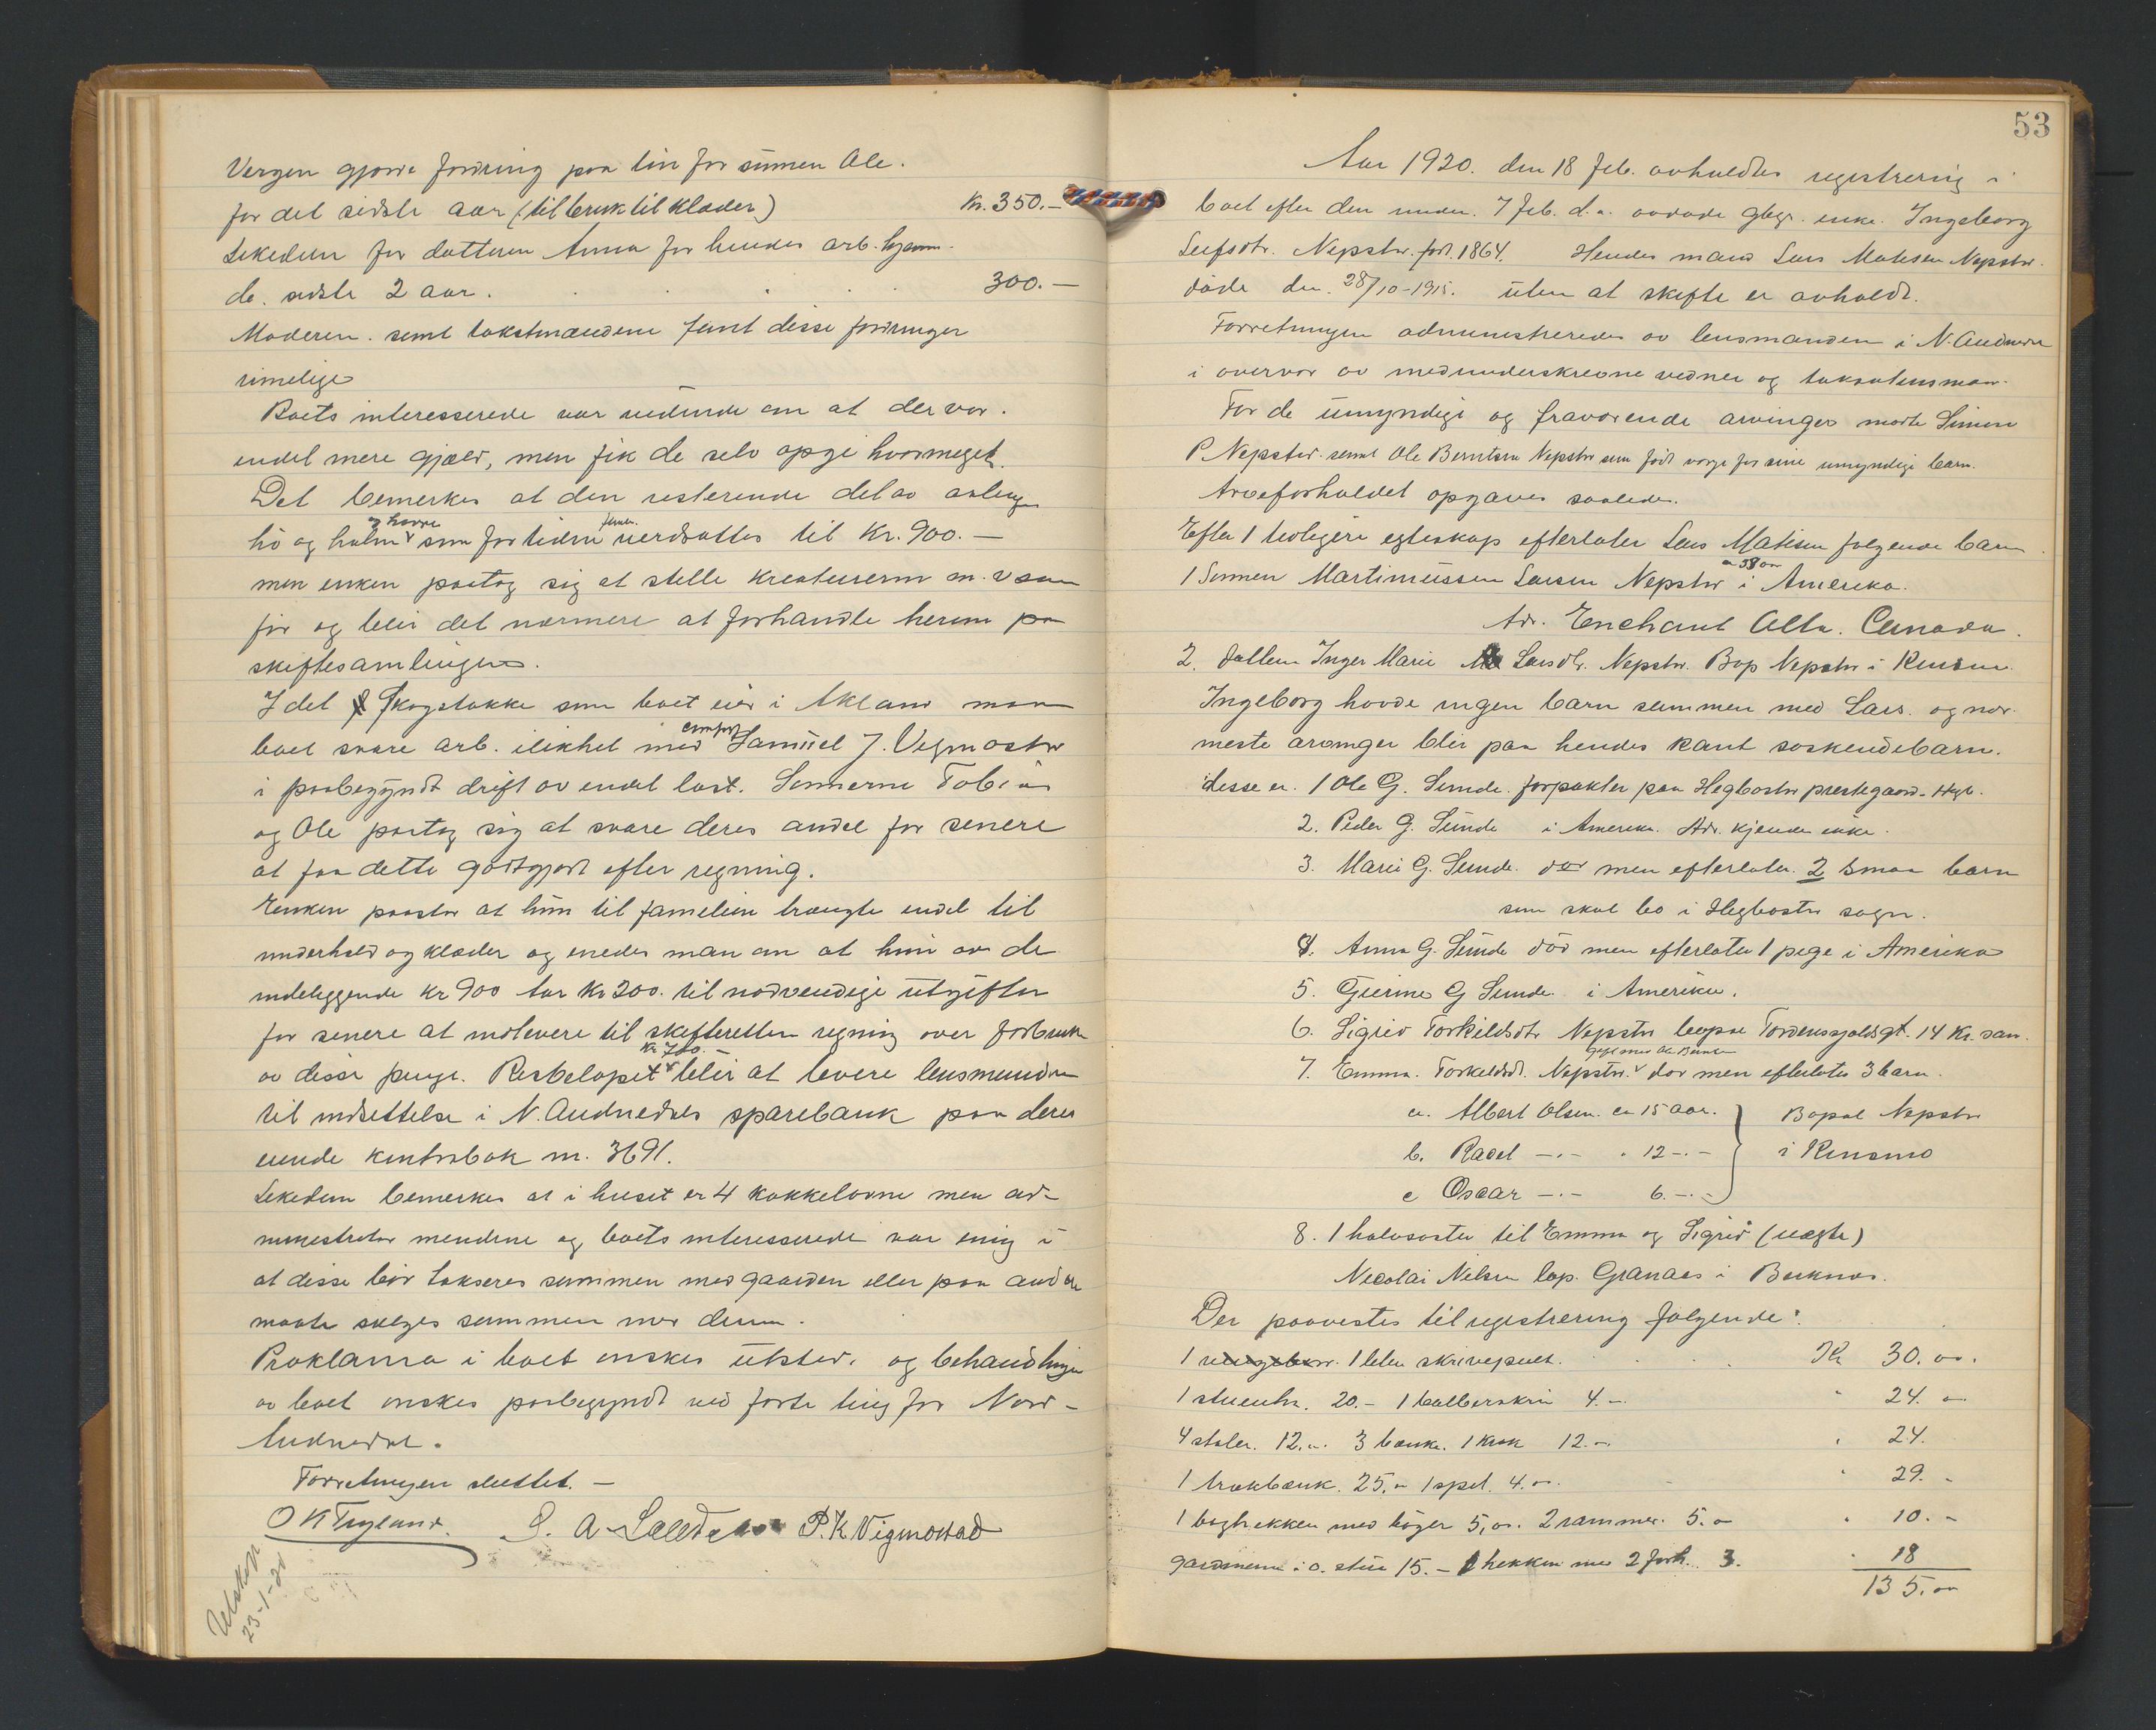 Vergen gjorde fordring paa løn for sønnen Ole.
for det sidste aar (til bruk til klæder) Kr. 350.-
Likedan for datteren Anna for hendes arb. hjemme
de sidste 2 aar. 300.-
Moderen samt takstmændene fandt disse fordringer
rimelige
Boets interesserede var vidende om at der var
endel mere gjæld, men fik de selv opgi hvormeget.
Det bemerkes at den resterende del av avling
hø og halm og havre som for tiden verdsattes til Kr. 900.-
men enken paatog sig at stelle kreaturerne m.v. som
før og blir det nærmere at forhandle herom paa
skiftesamlingen.
I det Skogstykke som boet eier i Akland maa
boet svare arb. i likhet med Samuel J. Vegmostad
i paabegyndt drift av endel last. Sønnerne Tobias
og Ole paatog sig at svare deres andel for senere
at faa dette godtgjort efter regning.
Enken paastod at hun til familien trængte endel til
underhold og klæder og enedes man om at hun av de
indeliggende kr 900 tar Kr 200. til nødvendige utgifter
for senere at indlevere til skifteretten regning over forbruk
av disse penge. Restbeløpet Kr 700.- blir at levere lensmanden
til indsettelse i N. Audnedals sparebank paa deres
eiende kontrabok nr. 3691.
Likedan bemerkes at i huset er 4 kakkelovne men ad-
ministrator mændene og boets interesserede var enig i
at disse bør takseres sammen med gaarden eller paa anden
maate sælges sammen med denne.
Proklama i boet ønskes utsted. og behandlingen
av boet ønskes paabegyndt ved første ting for Nord-
Audnedal.
Forretningen sluttet.-
O K Trygland. P. K. Vigmostad
Utskrift
23-1-20
53
Aar 1920. den 18 feb. avholdtes registrering i
boet efter den under. 7 feb. d.a. avdøde gbgr. enke. Ingeborg
Leifsdtr. Nepstad. fød. 1864. Hendes mand Lars Matisen Nepstad.
døde den. 28/10-1915. uten at skifte er avholdt.
Forretningen administreredes av lensmanden i N. Audnedal
i overvær av medunderskrevne vidner og taksationsmænd.
For de umyndige og fraværende arvinger mødte Simon
P. Nepstad samt Ole Berntsen Nepstad som født værge for sine umyndige barn.
Arveforholdet opgaves saaledes.
Efter 1 tidligere egteskap efterlater Lars Matisen følgende barn
1 Sønnen Martinussen Larsen Nepstad ca 38 aar i Amerika.
Adr. Enchant Alta. Canada.
2. datteren Inger Marie Larsdtr. Nepstad. Bop Nepstad i Kinsmo.
Ingeborg havde ingen barn sammen med Lars og nær-
meste arvinger blir paa hendes kant søskendebarn.
disse er. 1 Ole G. Sunde. forpakter paa Hegbostad prestegaard. Hgb.
2. Peder G. Sunde i Amerika. Adr. kjendes ikke.
3. Marie G. Sunde. død men efterlater. 2 smaa barn
som skal bo i Hegbostad sogn.
4. Anna G. Sunde død men efterlater 1 pige i Amerika
5. Gurine G Sunde. i Amerika.
6. Sigrid Torkildsdtr Nepstad bopæl Tordenskjoldsgt. 14 Kr. san.
7. Emma. Torkeldsd. Nepstad. gift med Ole Berntsen død men efterlater 3 barn.
a. Albert Olsen. ca 15 aar. Bopæl Nepstad
b. Rael -.- " 12 -.- i Kinsmo
c Oscar -.- 6. -.-
8. 1 halvsøster til Emma og Sigrid (uægte)
Nicolai Nelsen bop. Granaas i Bæknes.
Der paavistes til registrering følgende:
1 liten skrivepult. Kr 30.00.
1 stueuhr. 20.- 1 balberskrin 4.- " 24.-
4 stoler. 12.- 3 bænke. 1 krak 12.- " 24.
1 trækbænk. 25.- 1 speil. 4.00. " 29.-
1 boghekken med bøger 5,00. 2 rammer. 5.- " 10.-
gardinene i o. stue 15.- 1 hekken med 2 forh. 3. " 18
135.00